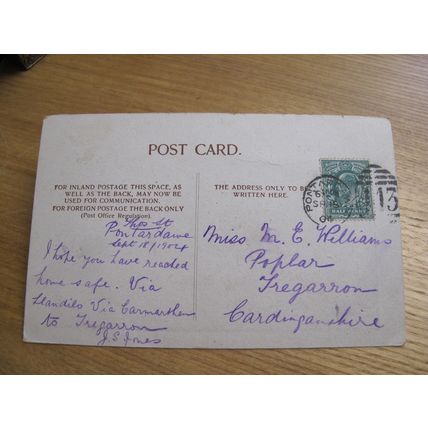 POST CARD.
FOR INLAND POSTAGE THIS SPACE, AS
WELL AS THE BACK, MAY NOW BE
USED FOR COMMUNICATION.
FOR FOREIGN POSTAGE THE BACK ONLY
(Post Office Regulation).
THE ADDRESS ONLY TO BE
WRITTEN HERE.
HALF PENNY
13
St
Pontardawe
Sept 18/1904
I hope you have reached
home safe. Via
Llandilo Via Carmarthen
to Tregarron
J S Jones
Miss M. E. Williams
Poplar
Tregarron
Cardinganshire